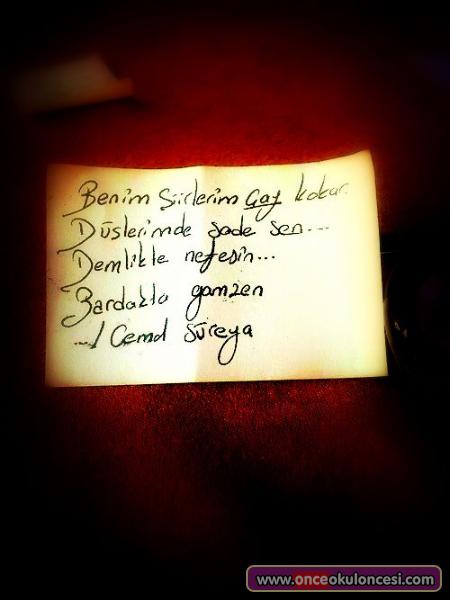 Benim Şiirlerim Çay kokar.
Düşlerimde sade sen...
Demlikte nefesin...
Bardakta gamzen
.../ Cemal Süreya
www.onceokuloncesi.com